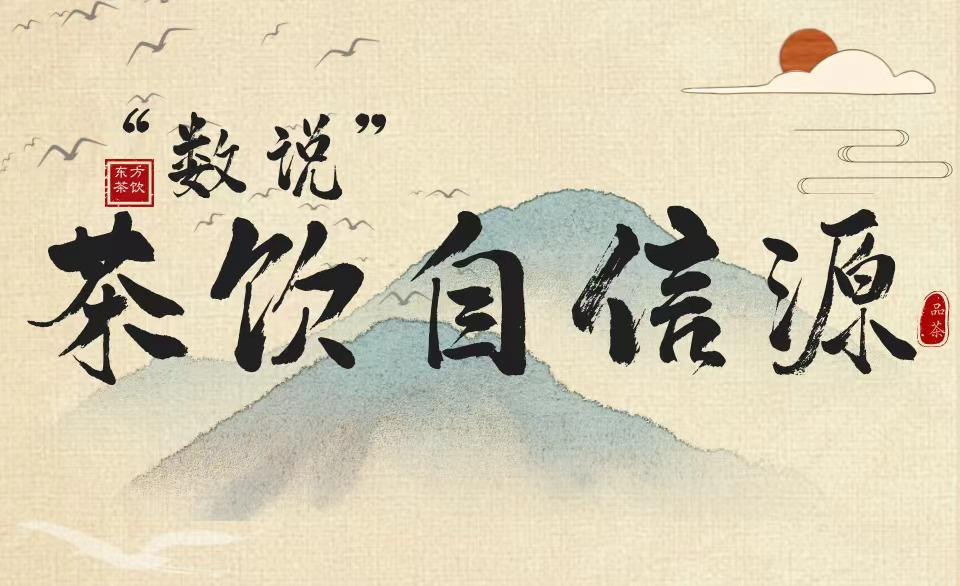 “数说”
东方
茶饮
茶饮自信源
品茶